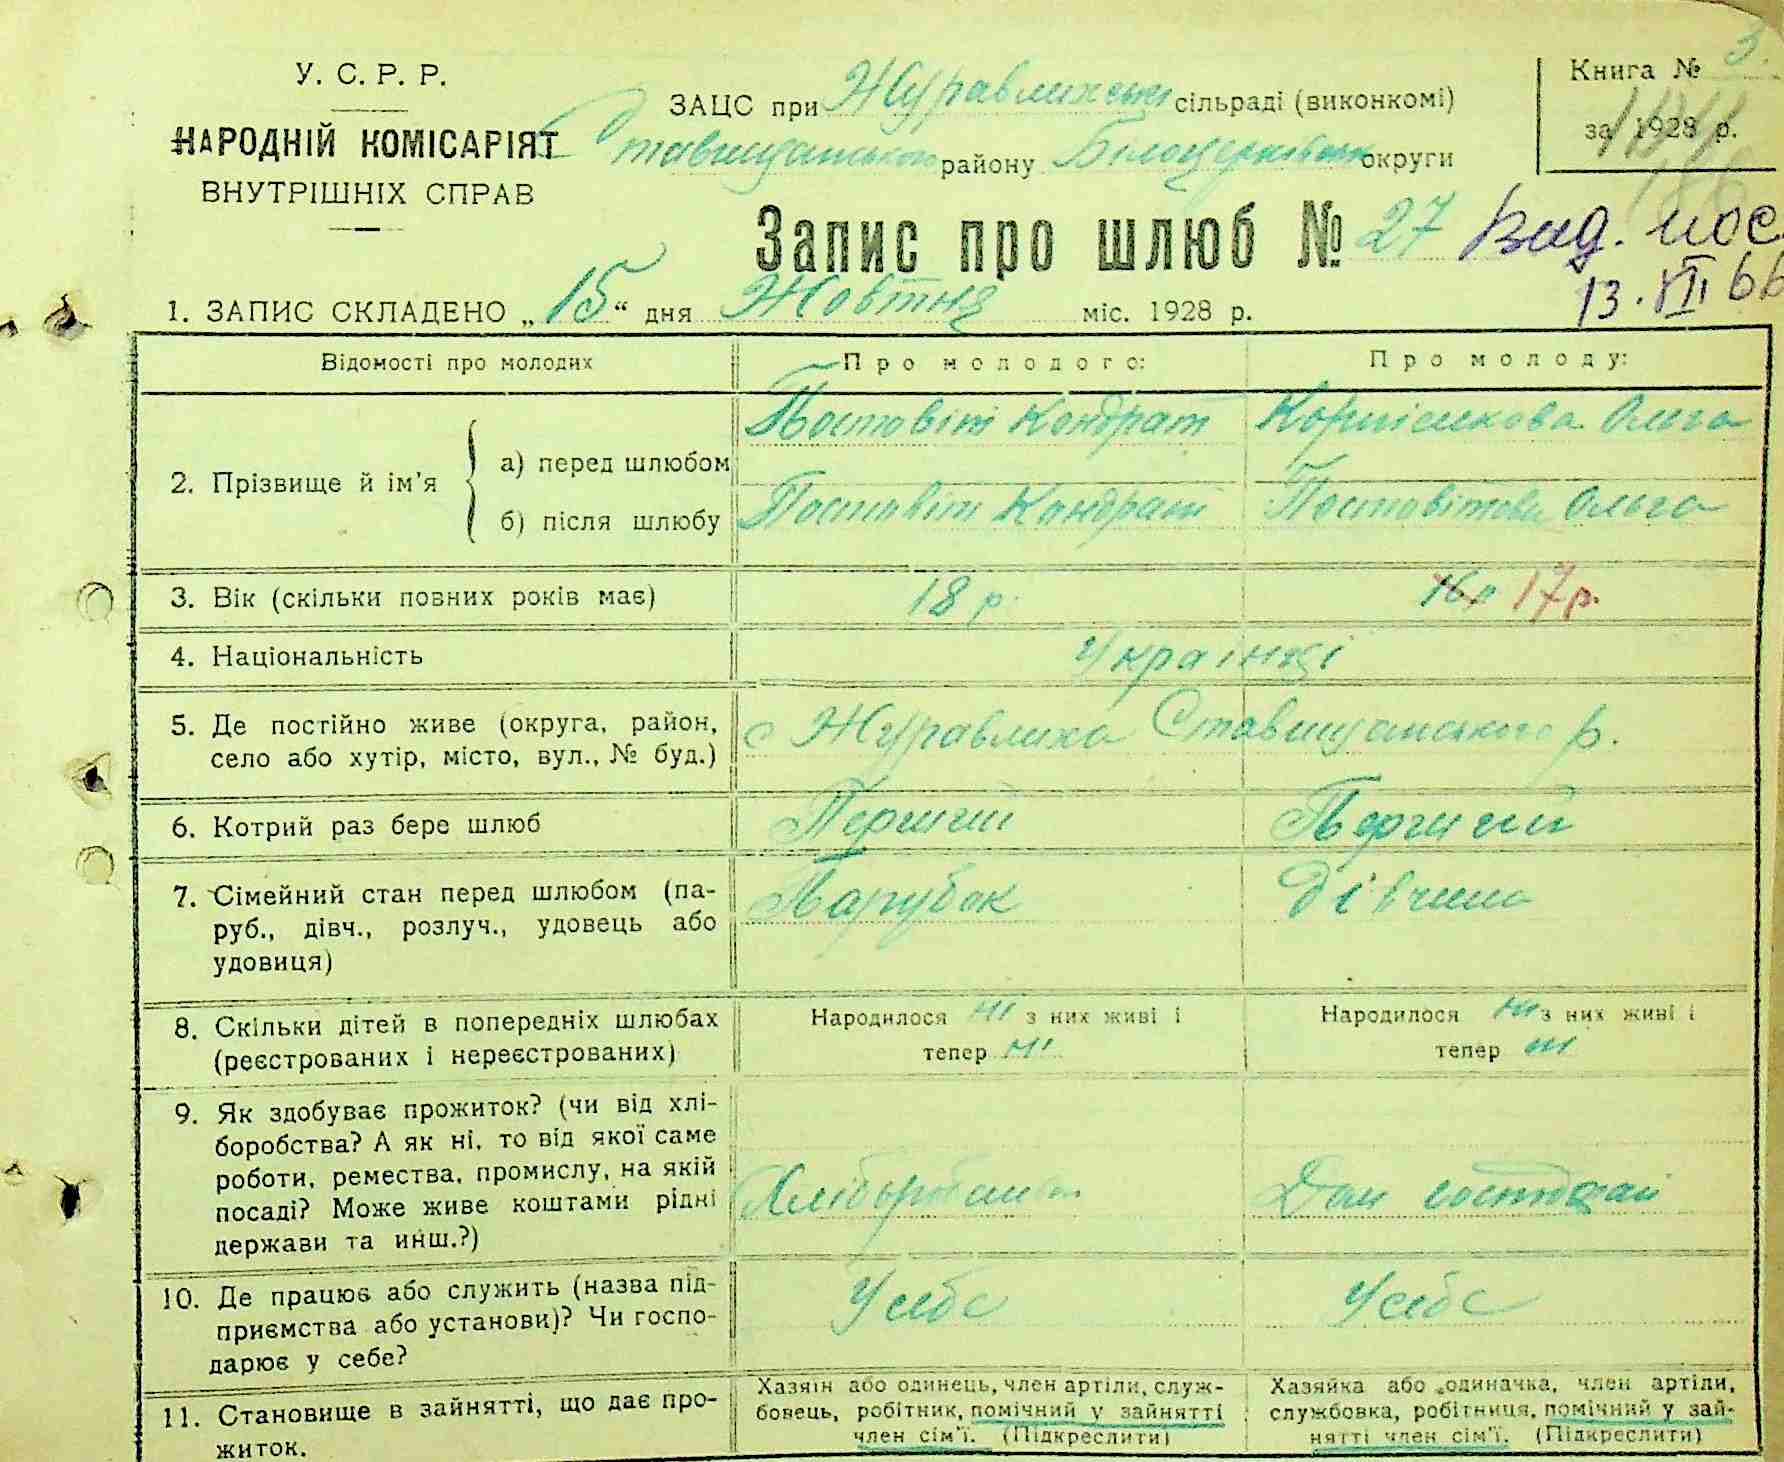 У. С. Р. Р.
НАРОДНІЙ КОМІСАРІЯТ
ВНУТРІШНІХ СПРАВ
ЗАЦС при Журавлихськ сільраді (виконкомі)
Ставищанського району Білоцерківськ округи
Книга № 3.
за 1928 р.
Запис про шлюб № 27
Вид. пос.
13. VII 66
1. ЗАПИС СКЛАДЕНО „15“ дня Жовтня міс. 1928 р.
Відомості про молодих
Про молодого:
Про молоду:
2. Прізвище й ім'я
а) перед шлюбом
Постовіт Кондрат
Ольга
б) після шлюбу
Постовіт Кондрат
Постовітова Ольга
3. Вік (скільки повних років має)
18 р.
16 р 17 р.
4. Національність
Українці
5. Де постійно живе (округа, район,
село або хутір, місто, вул., № буд.)
с Журавлиха Ставищанського р.
6. Котрий раз бере шлюб
Перший
Перший
7. Сімейний стан перед шлюбом (па-
руб., дівч., розлуч., удовець або
удовиця)
Парубок
Дівчина
8. Скільки дітей в попередніх шлюбах
(реєстрованих і нереєстрованих)
Народилося ні з них живі і
тепер ні
Народилося ні з них живі і
тепер ні
9. Як здобуває прожиток? (чи від хлі-
боробства? А як ні, то від якої саме
роботи, ремества, промислу, на якій
посаді? Може живе коштами рідні
держави та инш.?)
Хліборобство
Дом господар
10. Де працює або служить (назва під-
приємства або установи)? Чи госпо-
дарює у себе?
У себе
У себе
11. Становище в зайнятті, що дає про-
житок.
Хазяїн або одинець, член артіли, служ-
бовець, робітник, помічний у зайнятті
член сім'ї. (Підкреслити)
Хазяйка або одиначка, член артіли,
службовка, робітниця, помічний у зай-
нятті член сім'ї. (Підкреслити)